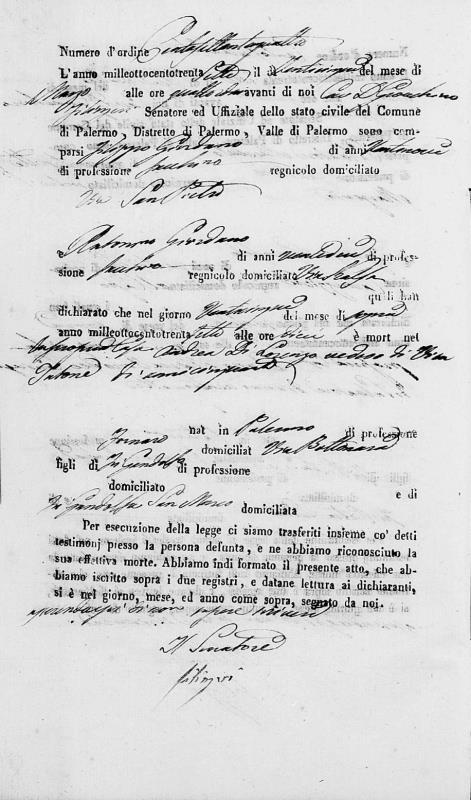 Numero d'ordine Centosettantaquattro
L'anno milleottocentotrenta sette il dì Venticinque del mese di
Marzo alle ore avanti di noi Cav. D. Gioachino
Senatore ed Uffiziale dello stato civile del Comune
di Palermo, Distretto di Palermo, Valle di Palermo sono com-
parsi Filippo Giordano di anni
di professione facchino regnicolo domiciliato
Via San Pietro
e Antonino Giordano di anni di profes-
sione facchino regnicolo domiciliato Via
quali han
dichiarato che nel giorno Venticinque del mese di
anno milleottocentotrenta sette alle ore dieci è mort nel
propria Casa Andrea Di Lorenzo vedovo di
di anni cinquanta
Fornaro nat in Palermo di professione
domiciliat Via
figli di di professione
domiciliato e di
San Marco domiciliata
Per esecuzione della legge ci siamo trasferiti insieme co' detti
testimonj presso la persona defunta, e ne abbiamo riconosciuto la
sua effettiva morte. Abbiamo indi formato il presente atto, che ab-
biamo iscritto sopra i due registri, e datane lettura ai dichiaranti,
si è nel giorno, mese, ed anno come sopra, segnato da noi.
di non sapere scrivere
Il Senatore